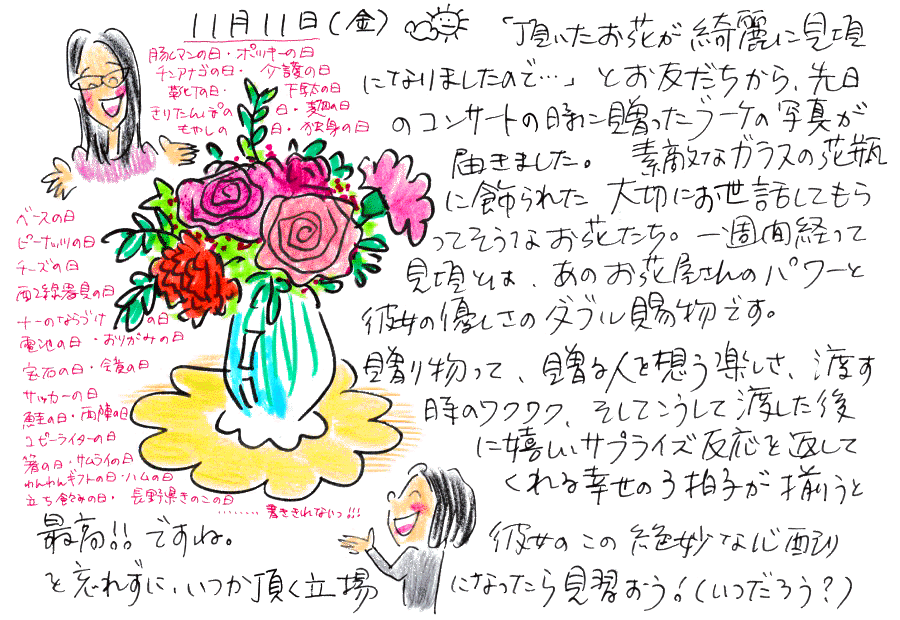 11月11日(金)
豚まんの日・ポッキーの日
チンアナゴの日・介護の日
靴下の日・下駄の日
きりたんぽの日・麺の日
もやしの日・独身の日
ベースの日
ピーナッツの日
チーズの日
配線器具の日
きのならづけの日
電池の日・おりがみの日
宝石の日・金属の日
サッカーの日
鮭の日・西陣の日
コピーライターの日
箸の日・サムライの日
わんわんギフトの日・ハムの日
立ち飲みの日・長野県きのこの日
………書ききれないっ!!!
「頂いたお花が綺麗に見頃
になりましたので…」とお友だちから、先日
のコンサートの時に贈ったブーケの写真が
届きました。素敵なガラスの花瓶
に飾られた大切にお世話してもら
ってそうなお花たち。一週間経って
見頃とは、あのお花屋さんのパワーと
彼女の優しさのダブル賜物です。
贈り物って、贈る人を想う楽しさ、渡す
時のワクワク、そしてこうして渡した後
に嬉しいサプライズ反応を返して
くれる幸せの3拍子が揃うと
最高!!ですね。彼女のこの絶妙な心配り
を忘れずに、いつか頂く立場になったら見習おう!(いつだろう?)